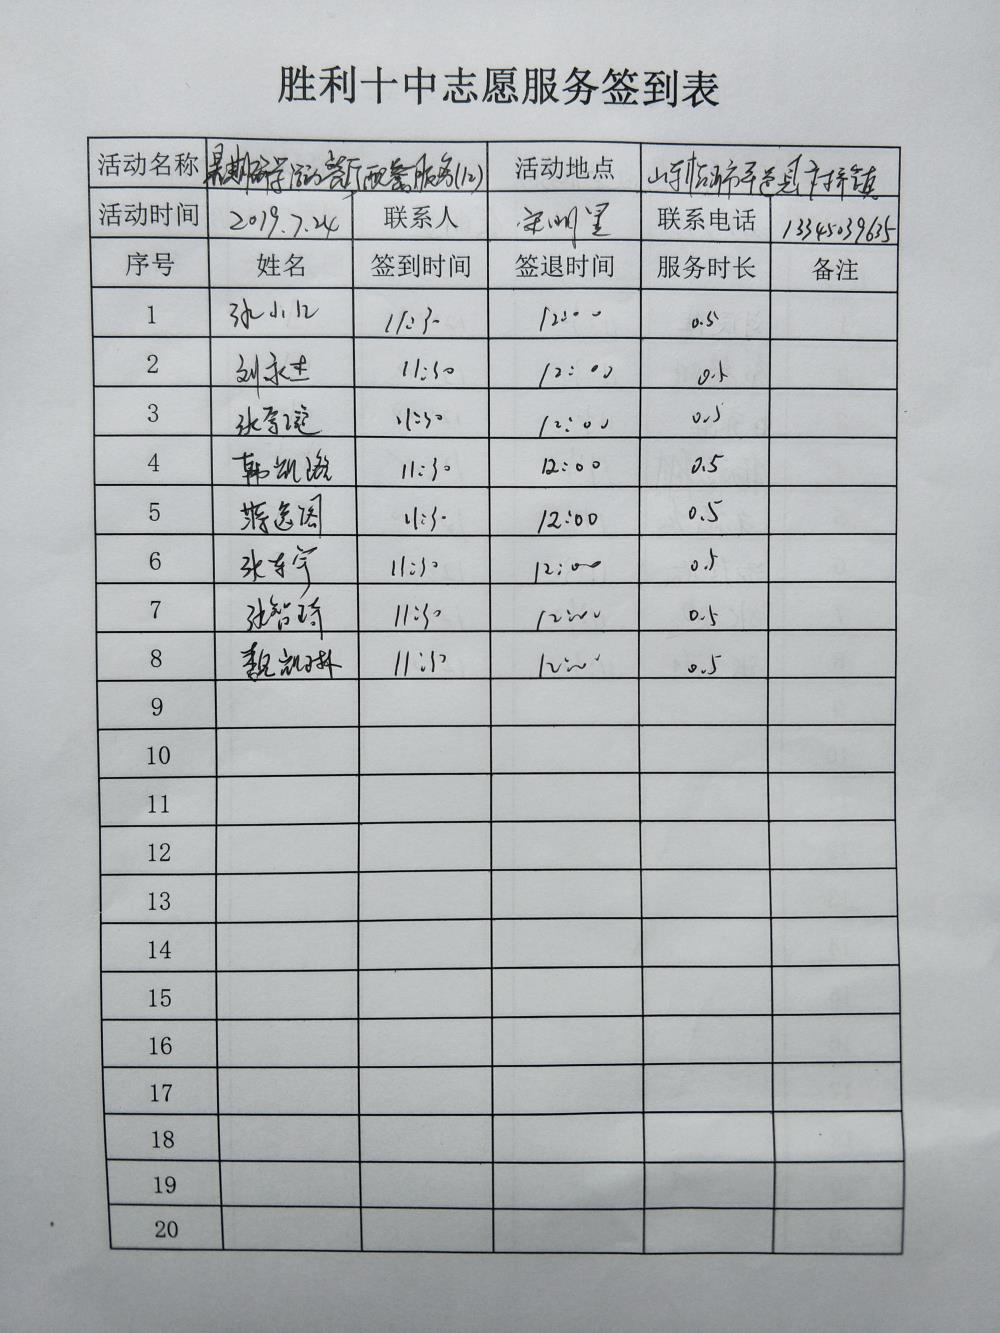 胜利十中志愿服务签到表
活动名称 暑期研学活动餐厅配餐服务(12) 活动地点 山东临沂市
活动时间 2019.7.24 联系人 宋明星 联系电话 13345039635
序号 姓名 签到时间 签退时间 服务时长 备注
1 张小仁 11:30 12:00 0.5
2 刘永杰 11:30 12:00 0.5
3 张 11:30 12:00 0.5
4 韩凯璐 11:30 12:00 0.5
5 蒋逸阁 11:30 12:00 0.5
6 张东宇 11:30 12:00 0.5
7 张智琦 11:30 12:00 0.5
8 魏凯林 11:30 12:00 0.5
9
10
11
12
13
14
15
16
17
18
19
20